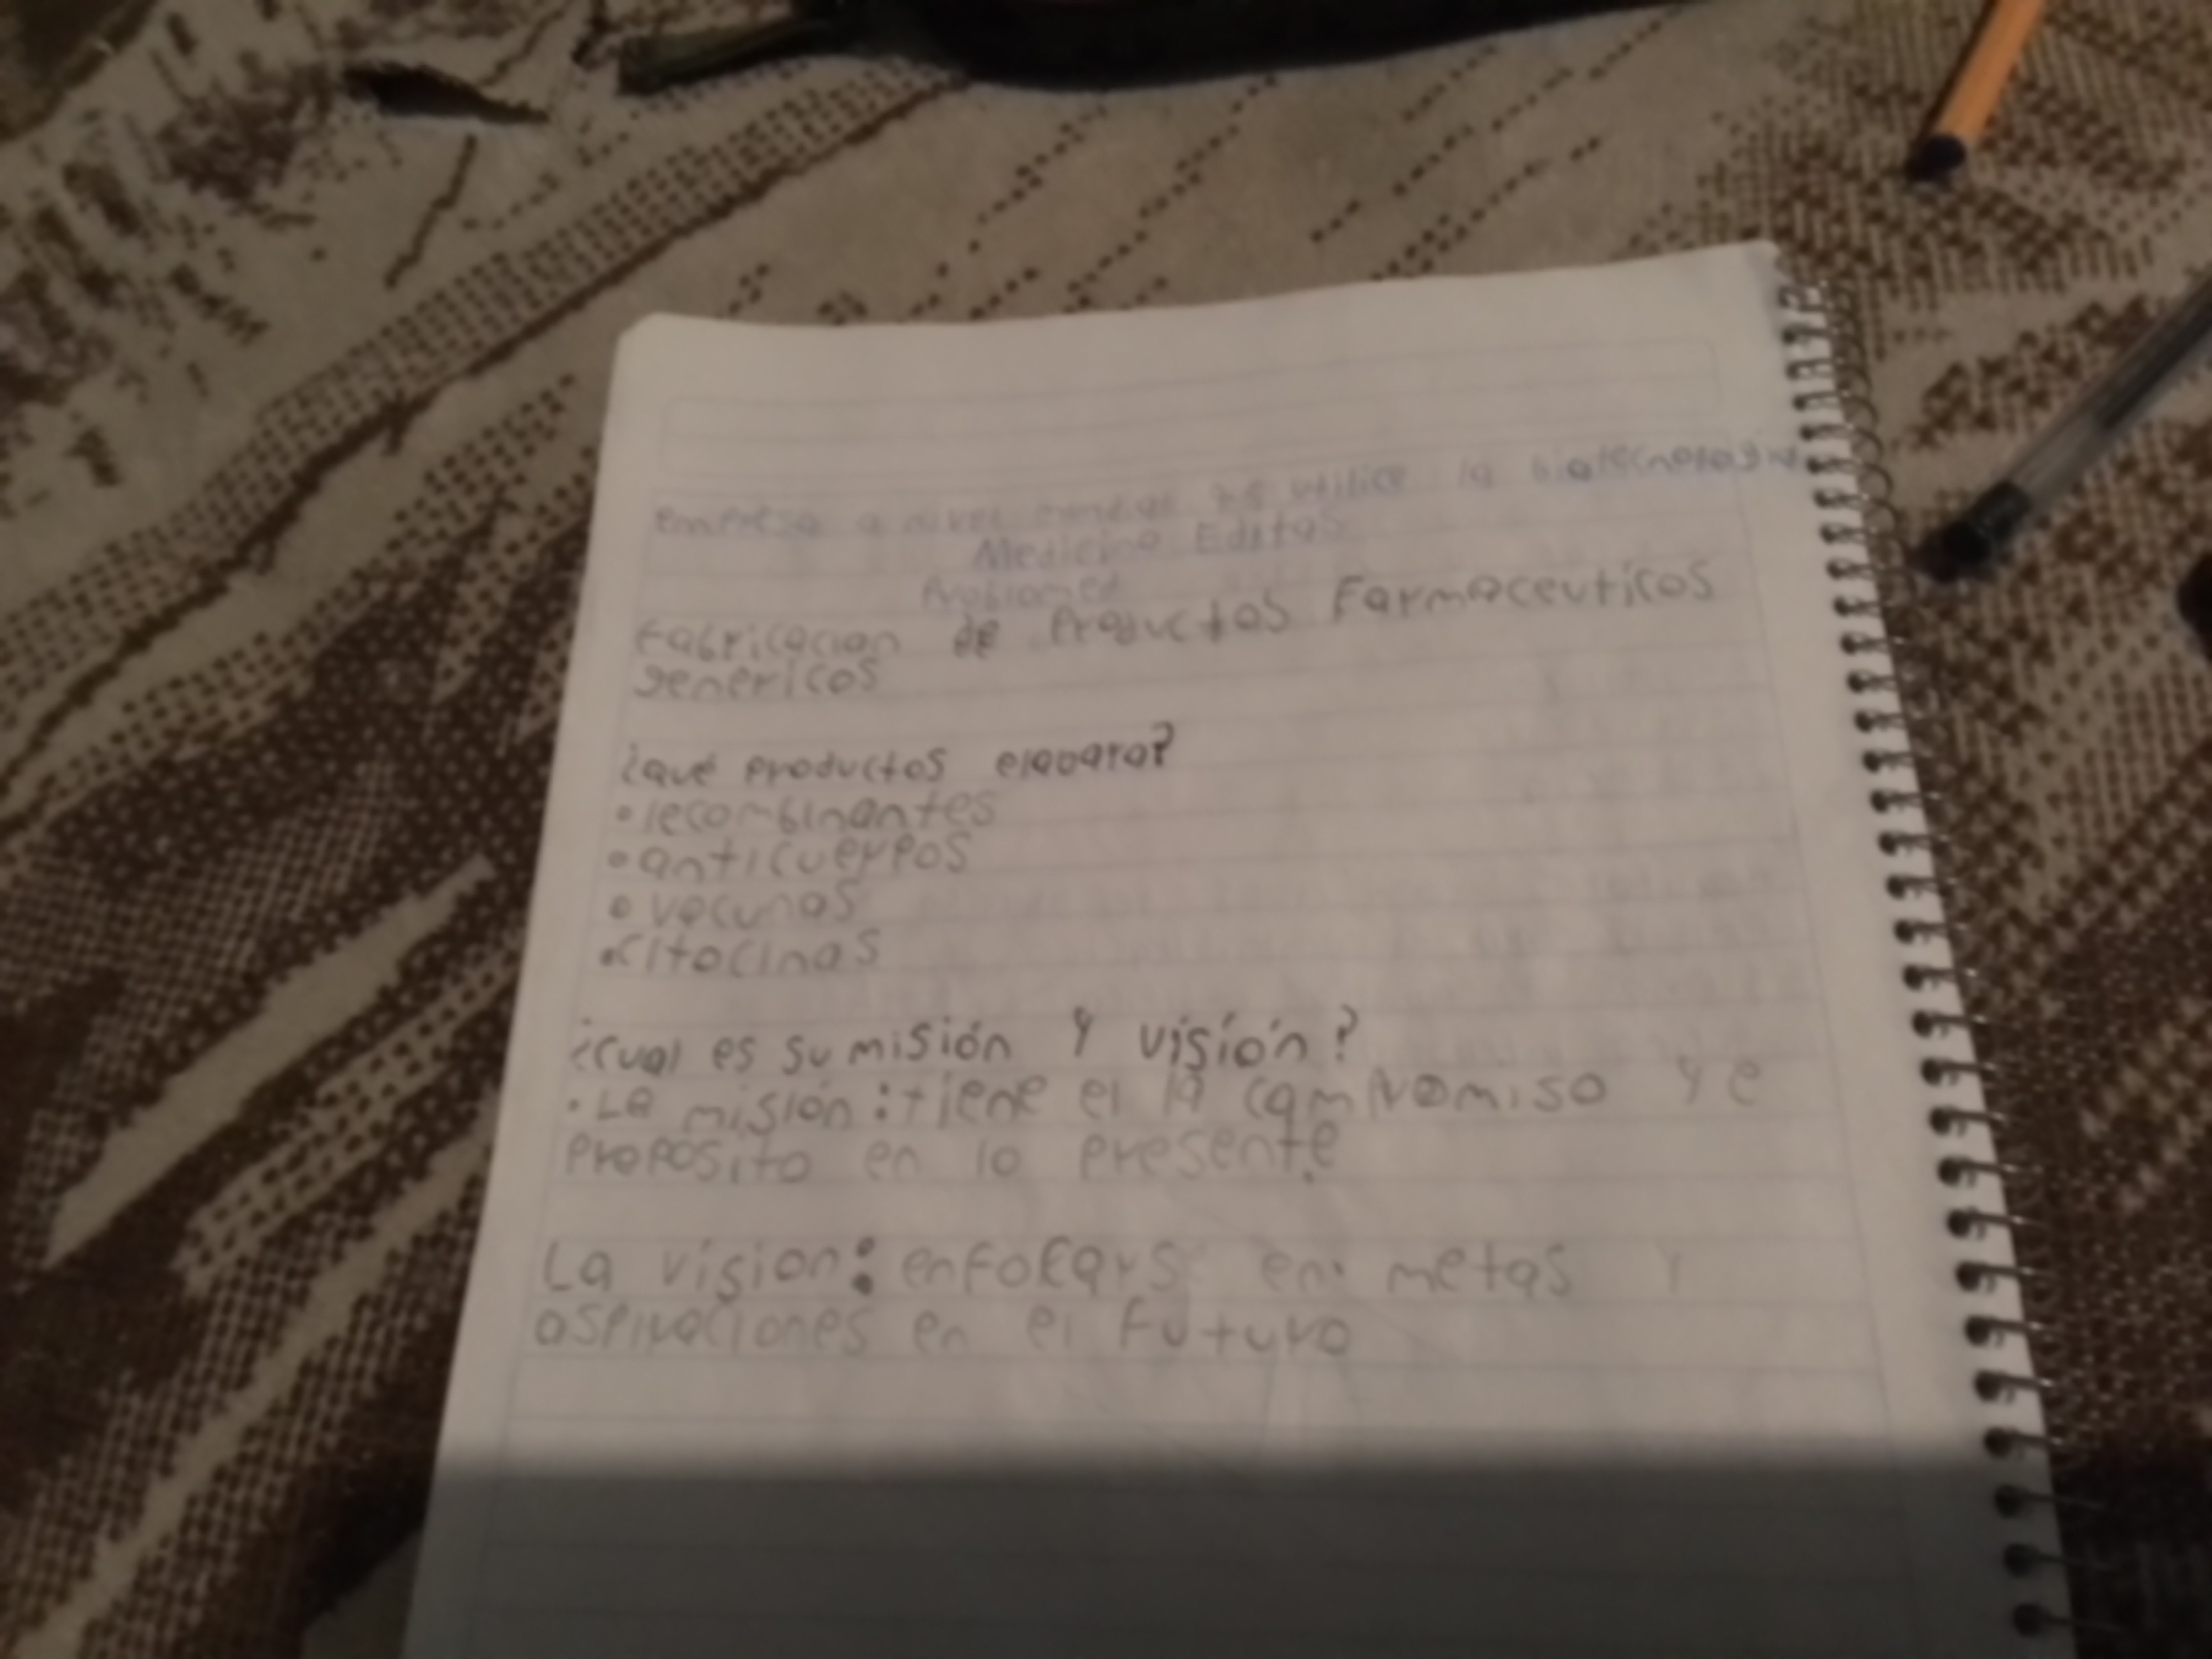 empresa a nivel utilice la biotecnologia
Medicina Editas
Probiomed
Fabricacion de Productos Farmaceuticos
genericos
¿qué productos elabora?
• recombinantes
• anticuerpos
• vacunas
• citocinas
¿Cual es su misión y visión?
• La misión: tiene el la compromiso y e
proposito en lo presente.
La vision: enfocars en metas y
aspiraciones en el futuro